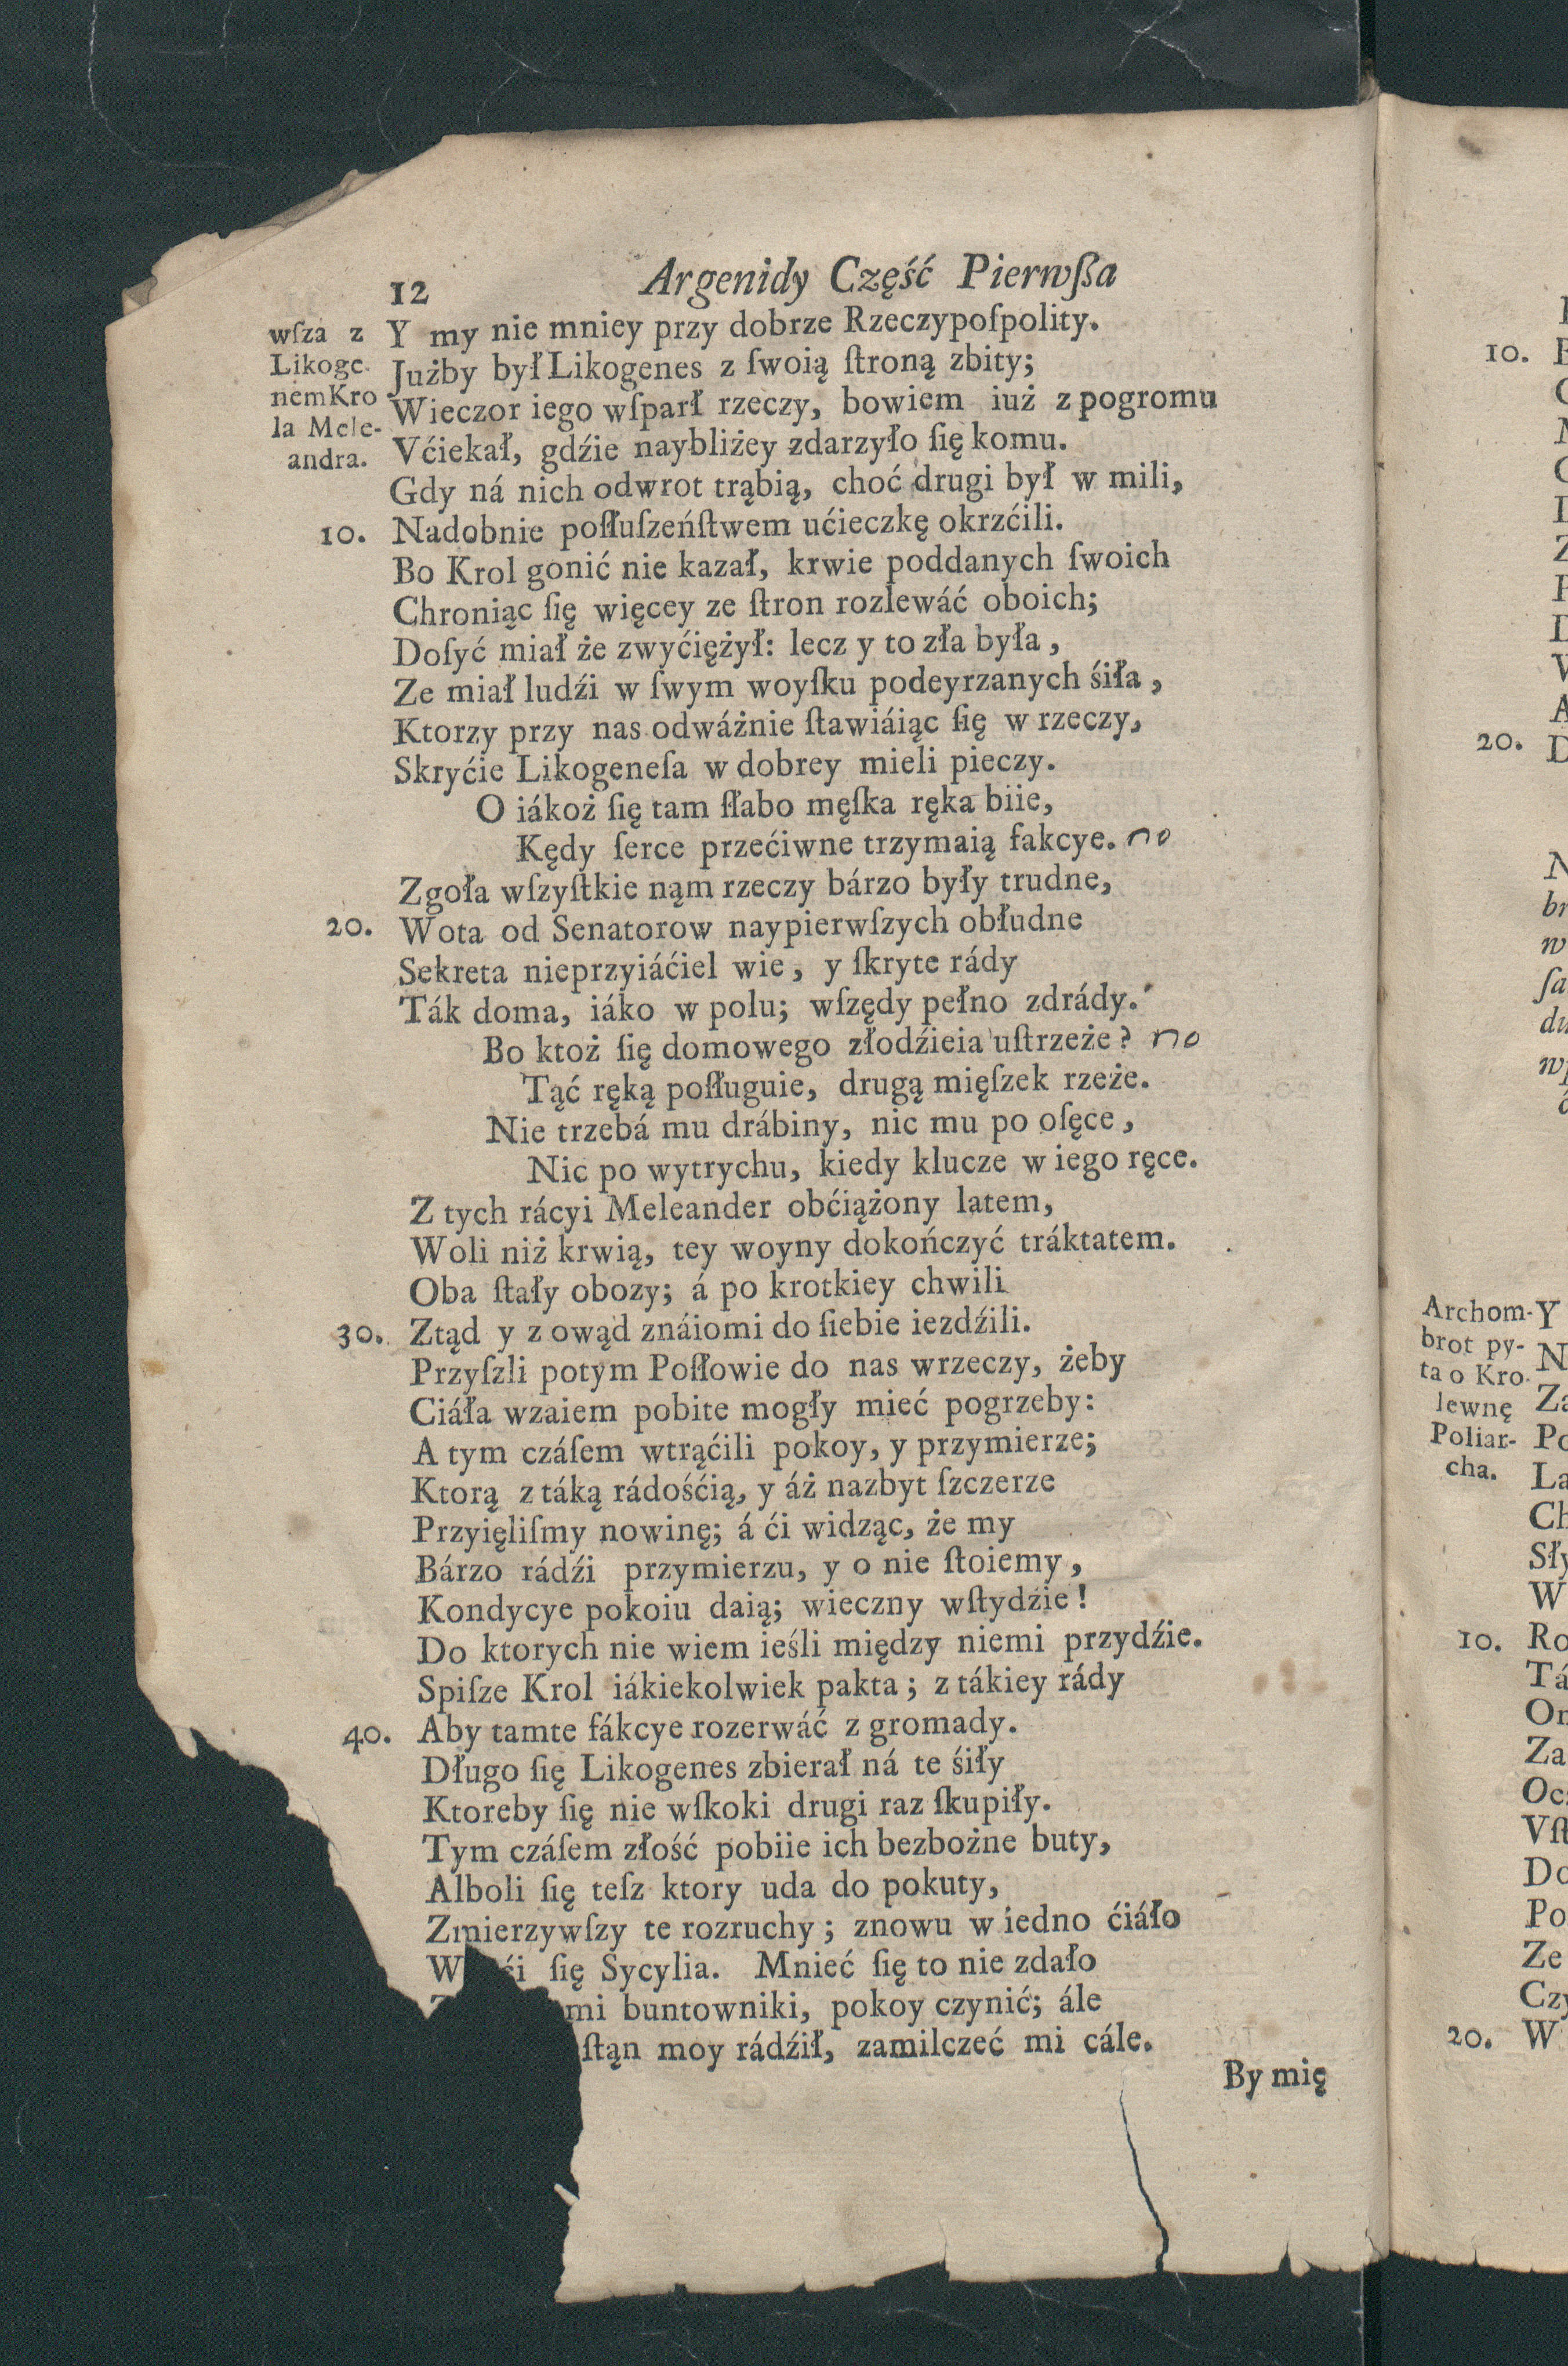 12 Argenidy Część Pierwßa
wſza z
Likoge-
nemKro
la Mele-
andra.
Y my nie mniey przy dobrze Rzeczypoſpolity.
Jużby był Likogenes z ſwoią ſtroną zbity;
Wieczor iego wſparł rzeczy, bowiem iuż z pogromu
Vćiekał, gdźie naybliżey zdarzyło ſię komu.
Gdy ná nich odwrot trąbią, choć drugi był w mili,
10. Nadobnie poſłuſzeńſtwem ućieczkę okrzćili.
Bo Krol gonić nie kazał, krwie poddanych ſwoich
Chroniąc ſię więcey ze ſtron rozlewáć oboich;
Doſyć miał że zwyćiężył: lecz y to zła była,
Ze miał ludźi w ſwym woyſku podeyrzanych śiła,
Ktorzy przy nas odwáżnie ſtawiáiąc ſię w rzeczy,
Skryćie Likogeneſa w dobrey mieli pieczy.
O iákoż ſię tam ſłabo męſka ręka biie,
Kędy ſerce przećiwne trzymaią fakcye. no
Zgoła wſzyſtkie nąm rzeczy bárzo były trudne,
20. Wota od Senatorow naypierwſzych obłudne
Sekreta nieprzyiáćiel wie, y ſkryte rády
Ták doma, iáko w polu; wſzędy pełno zdrády.
Bo ktoż ſię domowego złodźieia uſtrzeże? no
Tąć ręką poſługuie, drugą mięſzek rzeże.
Nie trzebá mu drábiny, nic mu po oſęce,
Nic po wytrychu, kiedy klucze w iego ręce.
Z tych rácyi Meleander obćiążony latem,
Woli niż krwią, tey woyny dokończyć tráktatem.
Oba ſtały obozy; á po krotkiey chwili
30. Ztąd y z owąd znáiomi do ſiebie iezdźili.
Przyſzli potym Poſłowie do nas wrzeczy, żeby
Ciáła wzaiem pobite mogły mieć pogrzeby:
A tym czáſem wtrąćili pokoy, y przymierze;
Ktorą z táką rádośćią, y áż nazbyt ſzczerze
Przyięliſmy nowinę; á ći widząc, że my
Bárzo rádźi przymierzu, y o nie ſtoiemy,
Kondycye pokoiu daią; wieczny wſtydźie!
Do ktorych nie wiem ieśli między niemi przydźie.
Spiſze Krol iákiekolwiek pakta; z tákiey rády
40. Aby tamte fákcye rozerwáć z gromady.
Długo ſię Likogenes zbierał ná te śiły
Ktoreby ſię nie wſkoki drugi raz ſkupiły.
Tym czáſem złość pobiie ich bezbożne buty,
Alboli ſię teſz ktory uda do pokuty,
Zmierzywſzy te rozruchy; znowu w iedno ćiáło
ſię Sycylia. Mnieć ſię to nie zdało
mi buntowniki, pokoy czynić; ále
ſtąn moy rádźił, zamilczeć mi cále.
By mię
10.
20.
Archom-
brot py-
ta o Kro-
lewnę
Poliar-
cha.
10.
20.